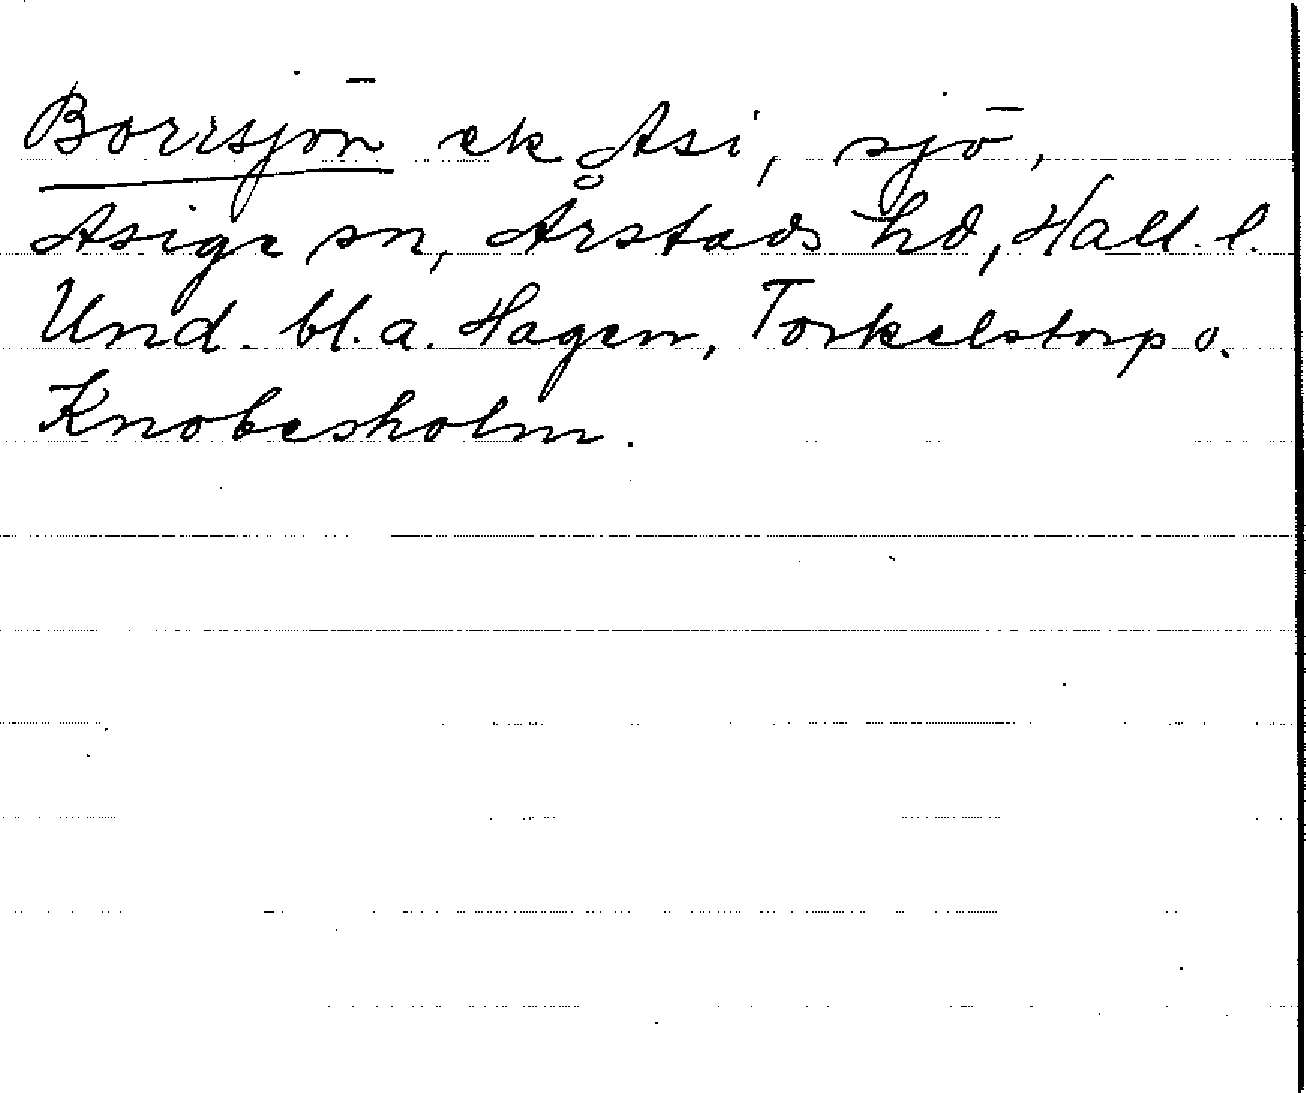 Borrsjön ek Asi, sjö,
Asige sn, Årstads hd, Hall. l.
Und. bl.a. Hagen, Torkelstorp o.
Knobesholm.